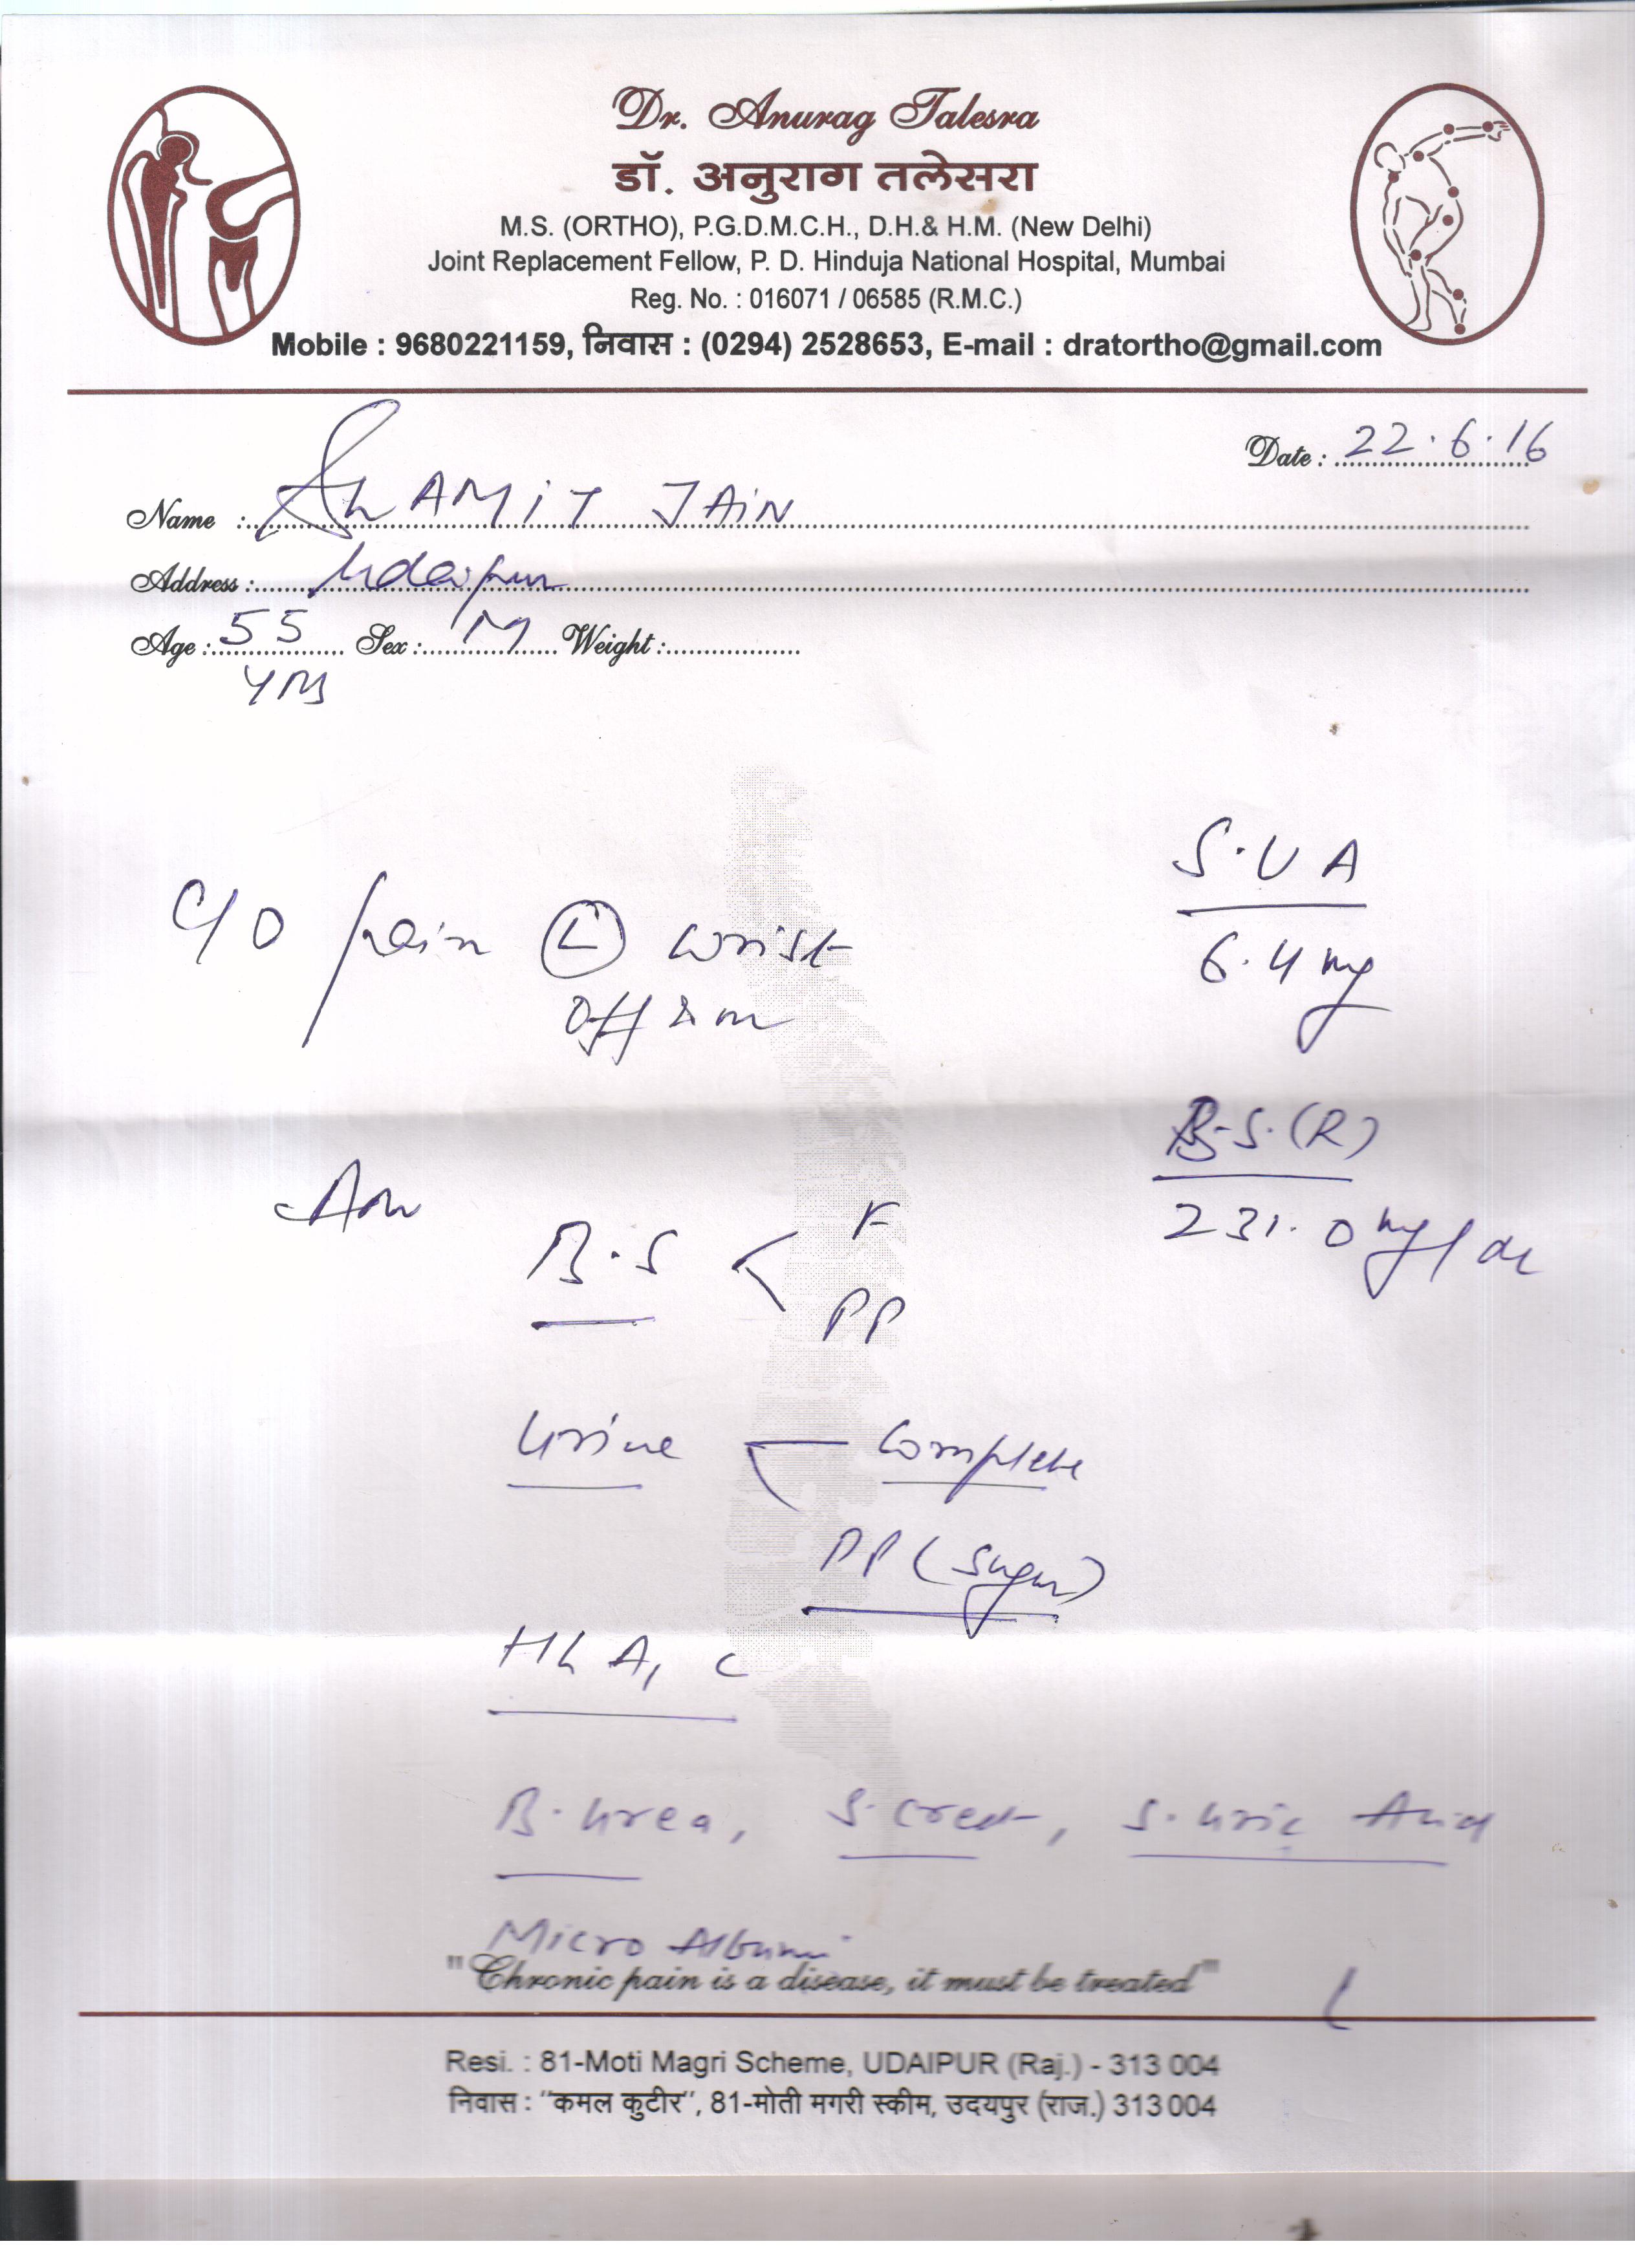 Dr. Anurag Talesra
डॉ. अनुराग तलेसरा
M.S. (ORTHO), P.G.D.M.C.H., D.H.& H.M. (New Delhi)
Joint Replacement Fellow, P. D. Hinduja National Hospital, Mumbai
Reg. No. : 016071 / 06585 (R.M.C.)
Mobile : 9680221159, निवास : (0294) 2528653, E-mail : dratortho@gmail.com
Date : 22.6.16
Name : Sh AMIT JAIN
Address : Udaipur
Age : 55 Sex : M Weight :
yrs
S.U A
6.4 mg
C/O pain (L) wrist
off & on
B.S.(R)
231.0 mg/dl
Adv
B.S < F
PP
Urine complete
PP (sugar)
Hb A1 C
B. Urea, S. Creat, S. Uric Acid
Micro Albumi
"Chronic pain is a disease, it must be treated"
Resi. : 81-Moti Magri Scheme, UDAIPUR (Raj.) - 313 004
निवास : "कमल कुटीर", 81-मोती मगरी स्कीम, उदयपुर (राज.) 313 004